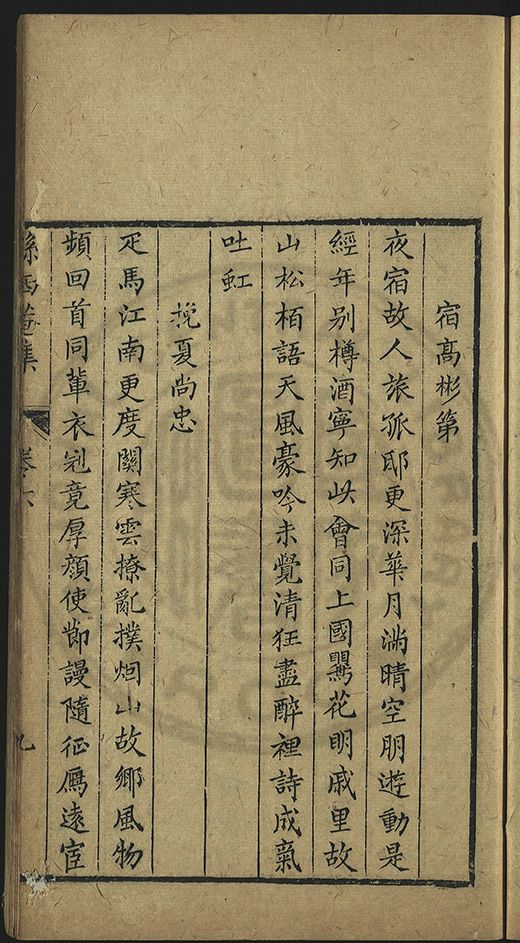 宿高彬第
夜宿故人旅孤邸更深華月滿晴空朋遊動是
經年别樽酒寧知此會同上國鸎花明戚里故
山松栢語天風豪吟未覺清狂盡醉裡詩成氣
吐虹
挽夏尚忠
疋馬江南更度關寒雲撩亂撲烟山故鄉風物
頻回首同輩衣冠竟厚顔使莭謾隨征鴈遠宦
孫西菴集 卷六 九